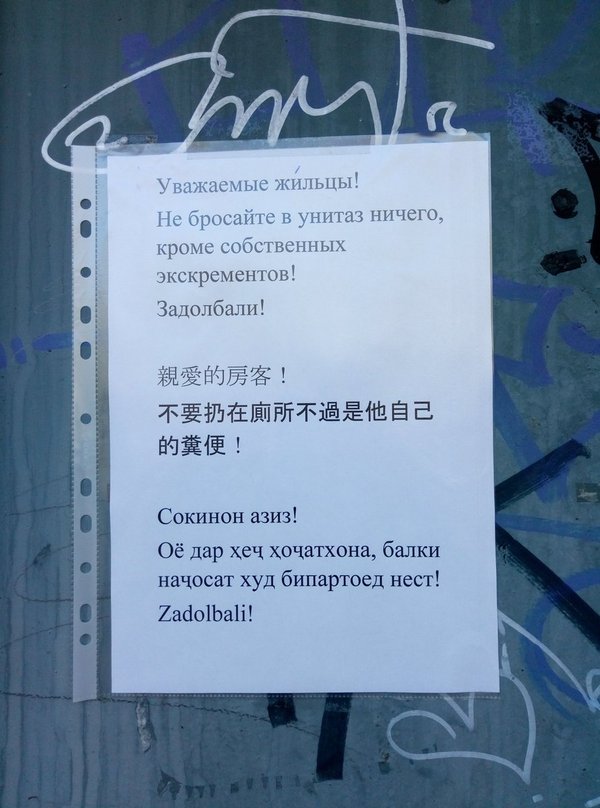 Уважаемые жи́льцы!
Не бросайте в унитаз ничего,
кроме собственных
экскрементов!
Задолбали!
親愛的房客！
不要扔在廁所不過是他自己
的糞便！
Сокинон азиз!
Оё дар ҳеҷ ҳоҷатхона, балки
наҷосат худ бипартоед нест!
Zadolbali!